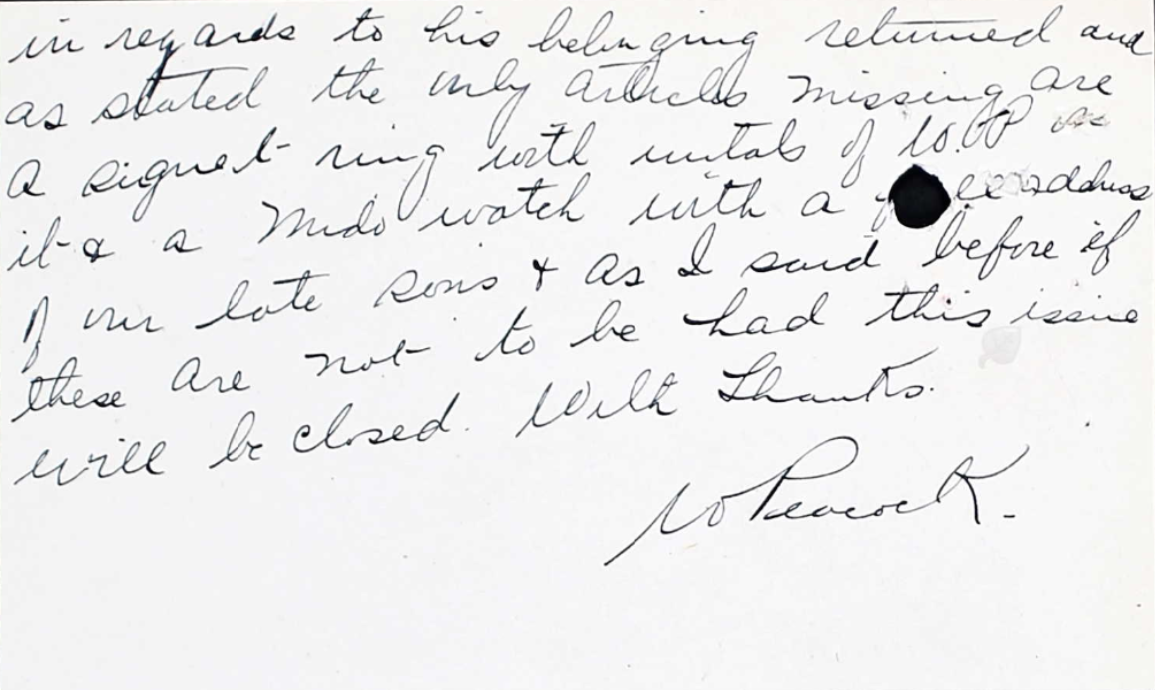 in regards to his belonging returned and
as stated the only articles missing are
a signet ring with initals of W.P
it & a Mido watch with a address
of our late sons & as I said before if
these are not to be had this issue
will be closed. With Thanks.
W Peacock.